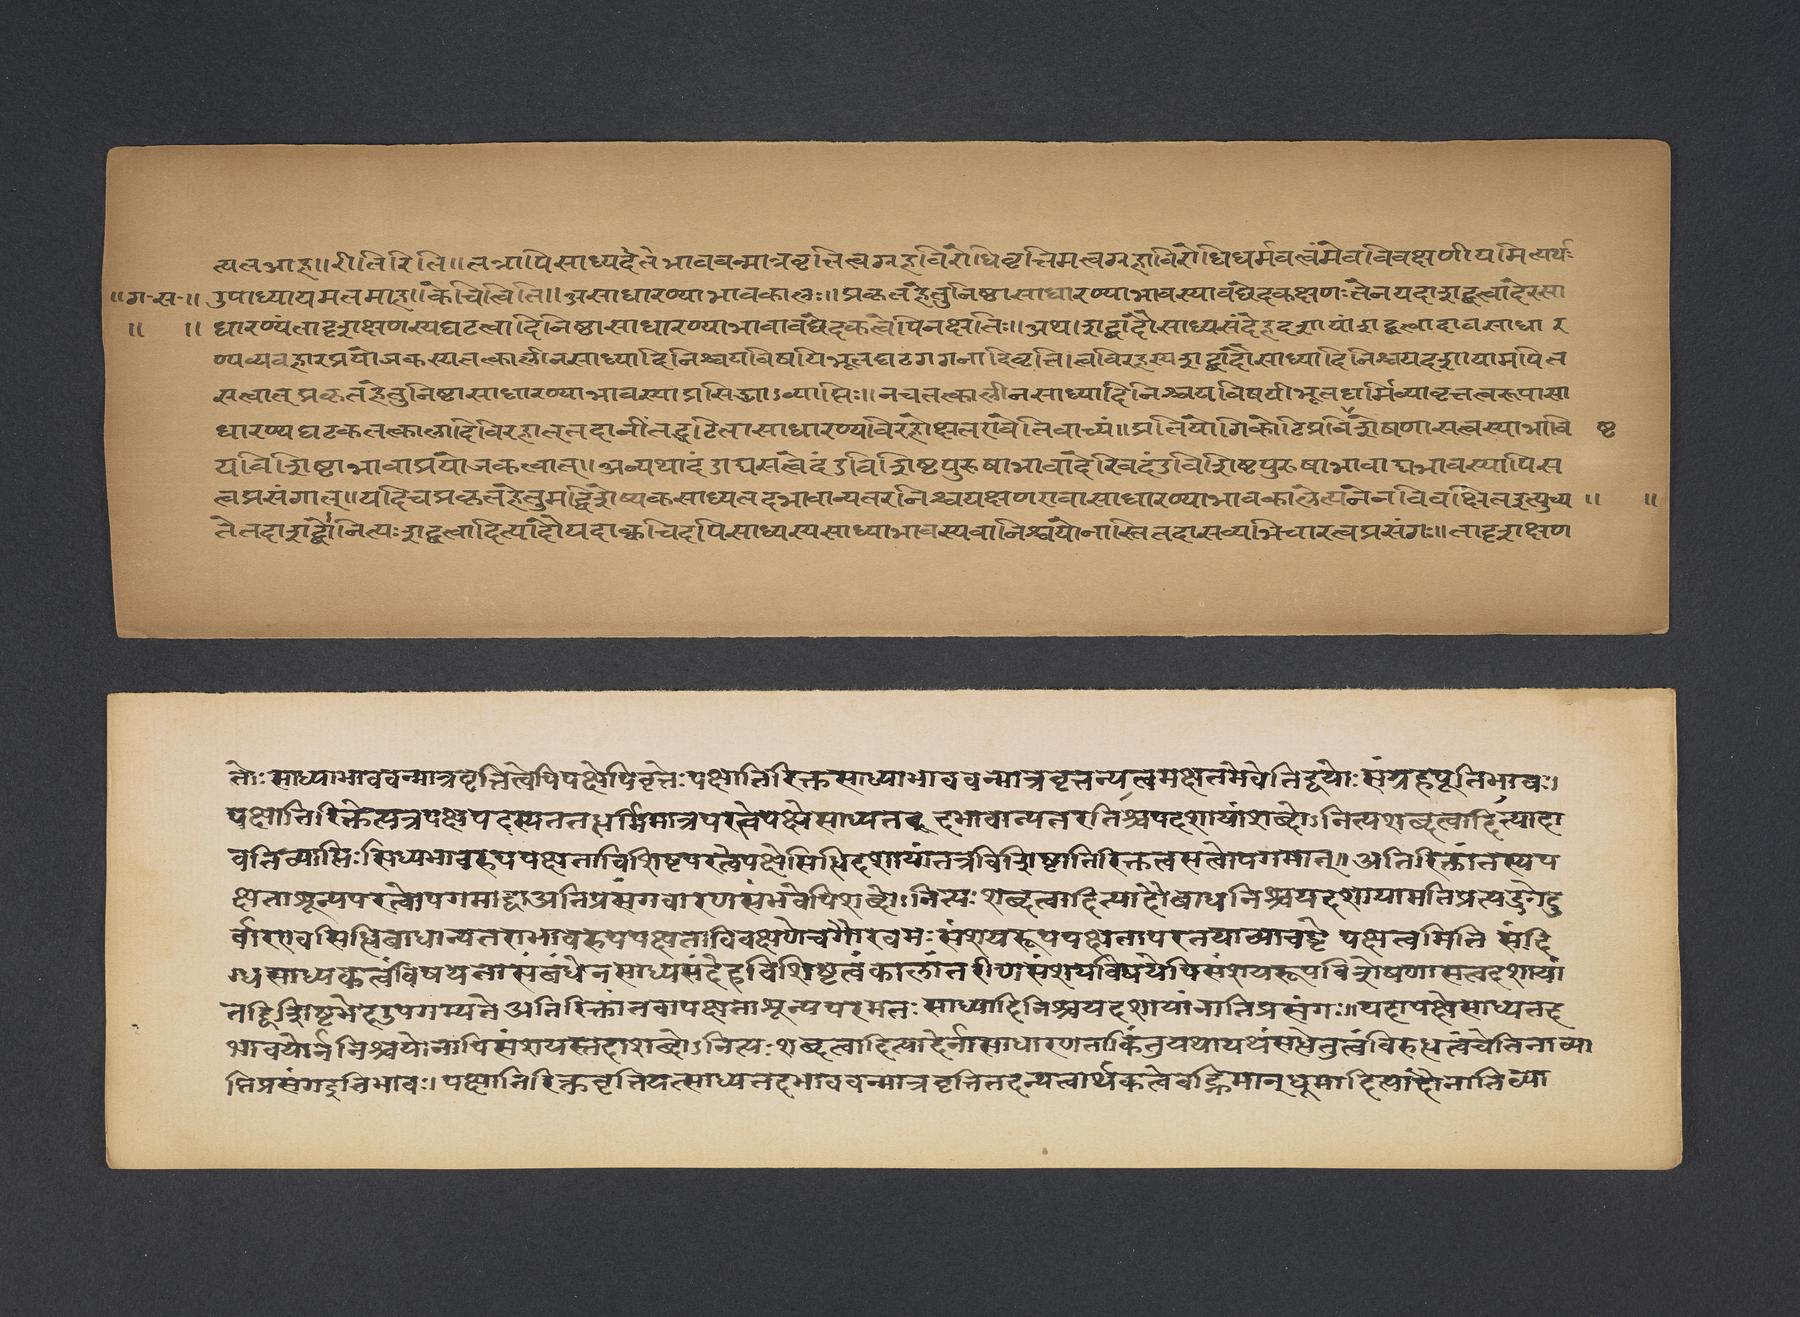 त्यत आह॥रीतिरिति॥तत्रापिसाध्यदंतेभाववन्मात्रवृत्तित्वग्रहविरोधिवृत्तिमत्वग्रहाविरोधिधर्मवत्वंमेवविवक्षणीयमित्यर्थः
॥ग॰स॰॥ उपाध्यायमतमाह॥केचित्विति॥असाधारण्याभावकालः॥प्रकृतहेतुनिष्ठासाधारण्याभावस्यावछेदकक्षणःतेनयदाशब्दत्वादेरसा
॥ ॥ धारण्यंतादृशक्षणस्यघटत्वादिनिष्ठासाधारण्याभावावछेदकत्वेपिनक्षतिः॥अथ।शब्दादौसाध्यसंदेहदशायांशब्दत्वादावसाधार
ण्यव्यवहारप्रयोजकस्यतत्कालीनसाध्यादिनिश्चयविषयिभूतघटगगनादिवृत्ति।त्वविरहस्यशब्दादौसाध्यादिनिश्चयदशायामपित
सत्वात्प्रकृतहेतुनिष्ठासाधारण्याभावस्याप्रसिद्ध्याऽव्याप्तिः॥नचतत्कालीनसाध्यादिनिश्चयविषयीभूतधर्मिव्यावृत्तत्वरूपासा
धारण्यघटकतत्कालादिविरहात्तदानींतद्घटितासाधारण्यविरहोक्षतएवेतिवाच्यं॥प्रतियोगिकोटिप्रविशेषणासत्वस्याभावि ष्ट
यविशिष्टाभावाप्रयोजकत्वात्॥अन्यथादंडाद्यसत्वेदंडविशिष्टपुरुषाभावादेरिवदंडविशिष्टपुरुषाभावाद्यभावस्यापिस
त्वप्रसंगात्॥यदिचप्रकृतहेतुमद्विशेष्यकसाध्यतदभावान्यतरनिश्चयक्षणएवासाधारण्याभावकालेत्यनेनविवक्षितइत्युच्य ॥ ॥
तेतदाशब्दोनित्यःशब्दत्वादित्यादौयदाक्वचिदपिसाध्यस्यसाध्याभावस्यवानिश्चयोनास्तितदासव्यभिचारत्वप्रसंगः॥तादृशक्षण
तोः साध्याभाववन्मात्रवृत्तित्वेपिपक्षेपिवृत्तेःपक्षातिरिक्तसाध्याभाववन्मात्रवृत्तन्यत्वमक्षतमेवेतिद्वयोः संग्रहपूतिभावः।
पक्षातिरिक्तेत्यत्रपक्षपदस्यतत्तद्धर्मिमात्रपरत्वेपक्षेसाध्यतदभावान्यतरनिश्चयदशायांशब्दोऽनित्यशब्दत्वादित्यादा
वतिव्याप्तिःसिध्यभावरूपपक्षताविशिष्टपरत्वेपक्षेसिद्धिदशायांतत्रविशिष्टातिरिक्तत्वसत्वोपगमात्॥अतिरिक्तांतस्यप
क्षताशून्यपरत्वोपगमाद्वाअतिप्रसंगवारणसंभवेपिशब्दोऽनित्यः शब्दत्वादित्यादौबाधनिश्चयदशायामतिप्रत्यङ्गेदु
र्वारएवसिद्धिबाधान्यतराभावरूपपक्षताविवक्षणेचगौरवमःसंशयरूपपक्षतापरतयाव्याचष्टे पक्षत्वमिति संदि
ग्धसाध्यकत्वंविषयतासंबंधेनसाध्यसंदेहविशिष्टत्वंकालांतरीणसंशयविषयेपिसंशयरूपविशेषणासत्वदशायां
तद्विशिष्टभेदउपगम्यतेअतिरिक्तांतवापक्षताशून्यपरमतः साध्यादिनिश्चयदशायांनातिप्रसंगः॥यदापक्षेसाध्यतद
भावयोर्ननिश्चयोनापिसंशयस्तदाशब्दोऽनित्यःशब्दत्वादित्यादेर्नासाधारणताकिंतुयथायथंसद्धेतुत्वंविरुद्धत्वंचेतिनाव्या
प्तिप्रसंगइतिभावः।पक्षातिरिक्तवृत्तियत्साध्यतदभाववन्मात्रवृत्तितदन्यत्वार्थकत्वेवह्निमान्धूमादित्यादौनातिव्या